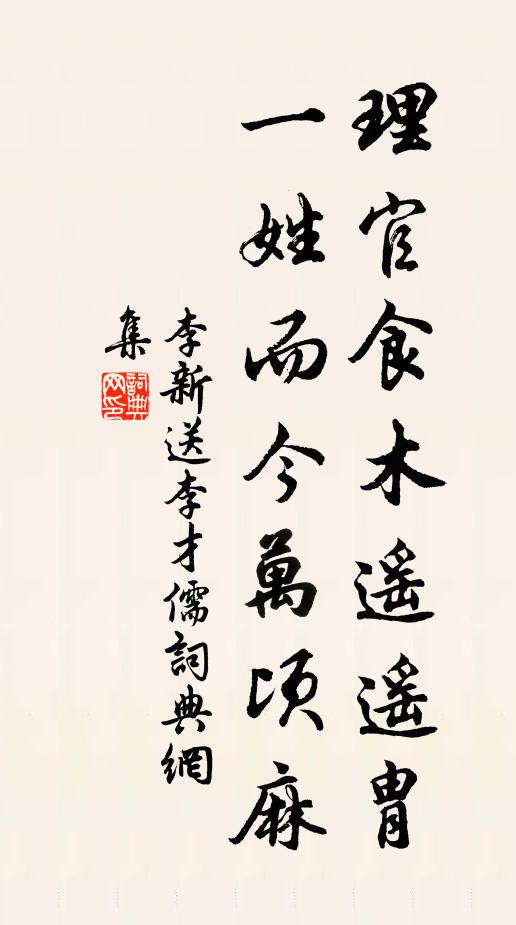 理官食木遥遥胄
一姓而今萬頃麻
李新送李才儒詞典網
集
詞典
网印